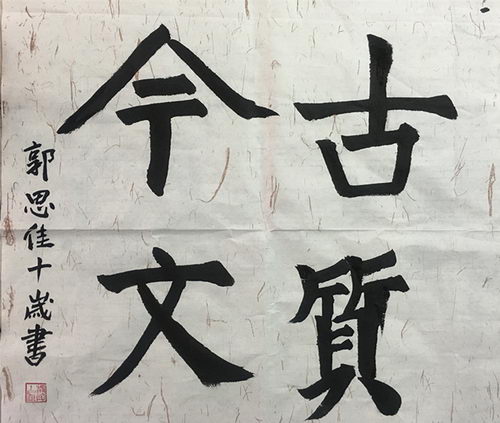 古質
今文
郭思佳十歲書